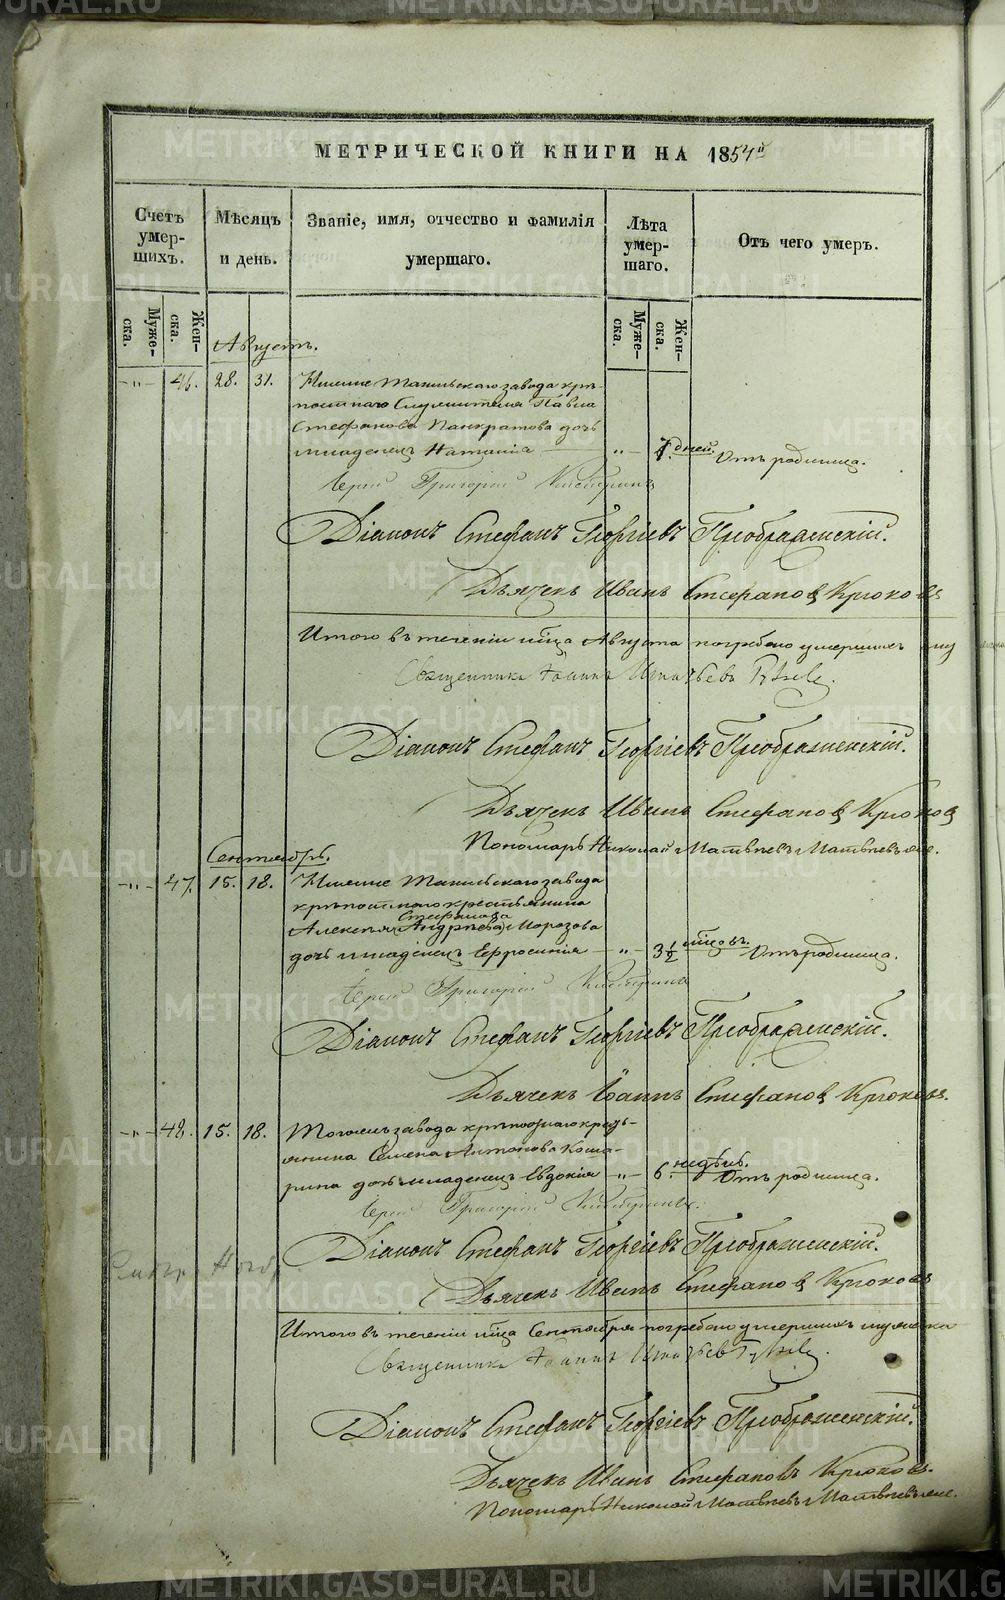 МЕТРИЧЕСКОЙ КНИГИ НА 1854й
Счетъ умер- шихъ.
Мѣсяцъ и день.
Званіе, имя, отчество и фамилія умершаго.
Лѣта умер- шаго.
Отъ чего умеръ.
Муже- ска.
Жен- ска.
Муже- ска.
Жен- ска.
Августъ.
-"- 46. 28. 31. Нижне Тагильскаго завода крѣ-
постнаго Служителя Павла
Стефанова Панкратова дочь
младенецъ Наталія -"- 7 дней. Отъ родимца.
Іерей Григорій
Діаконъ Стефанъ Георгіевъ Преображенскій.
Дьячекъ Иванъ Стефановъ Крюковъ
Итого въ теченіи мѣца Августа погребено умершихъ
Священникъ Іоаннъ Игнатьевъ
Діаконъ Стефанъ Георгіевъ Преображенскій.
Дьячекъ Иванъ Стефановъ Крюковъ
Пономарь Николай Матвѣевъ Матвѣевъ
Сентябрь.
-"- 47. 15. 18. Нижне Тагильскаго завода
крѣпостнаго крестьянина
Стефанова
Алексѣя (Андрѣева) Морозова
дочь младенецъ Ефросинія -"- 3 1/2 мѣцовъ. Отъ родимца.
Іерей Григорій
Діаконъ Стефанъ Георгіевъ Преображенскій.
Дьячекъ Іоаннъ Стефановъ Крюковъ.
-"- 48. 15. 18. Тогожъ завода крѣпостнаго кресть-
янина Семена Антонова Коша-
рина дочь младенецъ Евдокія -"- 6. недѣль. Отъ родимца.
Іерей Григорій
Діаконъ Стефанъ Георгіевъ Преображенскій.
Дьячекъ Иванъ Стефановъ Крюковъ
Итого въ теченіи мѣца Сентября погребено умершихъ мужеска
Священникъ Іоаннъ Игнатьевъ
Діаконъ Стефанъ Георгіевъ Преображенскій.
Дьячекъ Иванъ Стефановъ Крюковъ.
Пономарь Николай Матвѣевъ Матвѣевъ
METRIKI.GASO-URAL.RU